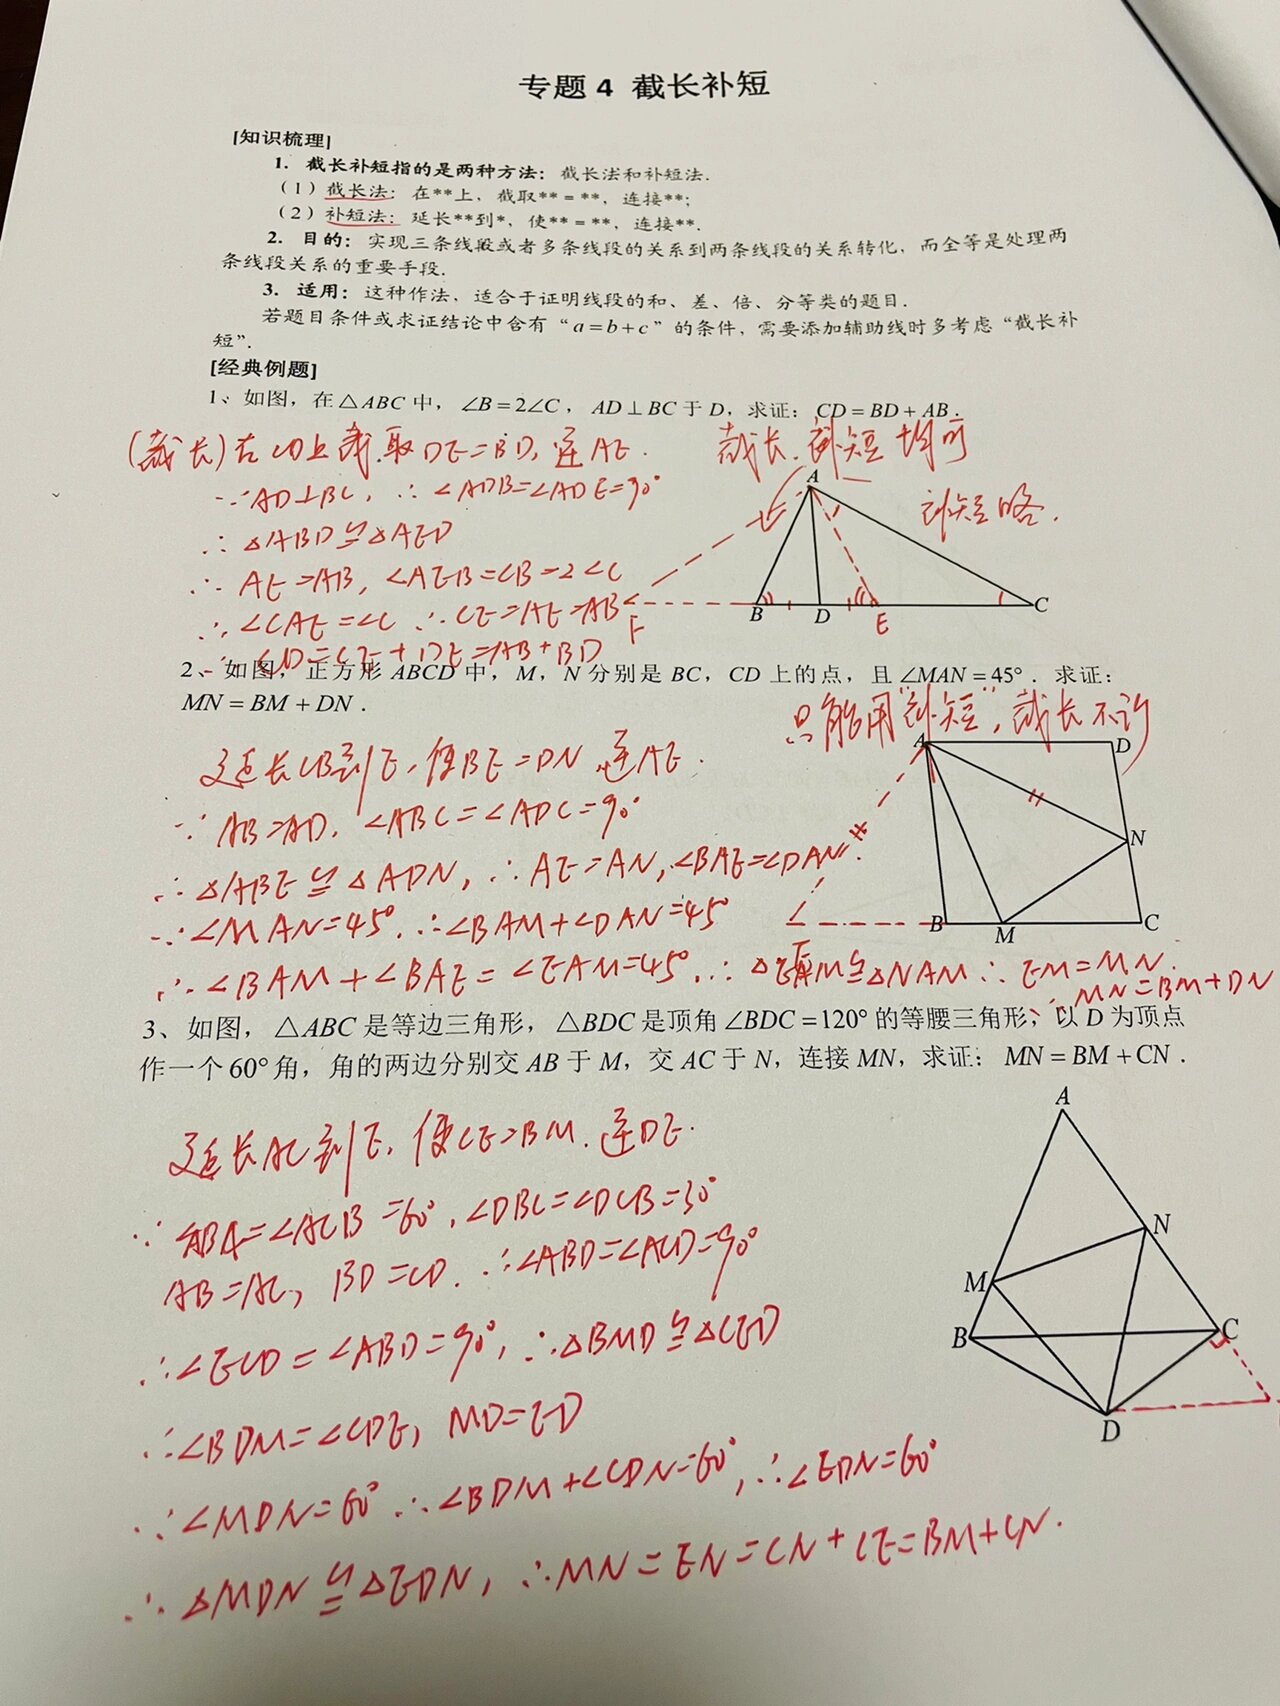 专题 4 截长补短
[知识梳理]
1. 截长补短指的是两种方法：截长法和补短法.
（1）截长法：在**上，截取**=**，连接**；
（2）补短法：延长**到*，使**=**，连接**.
2. 目的：实现三条线段或者多条线段的关系到两条线段的关系转化，而全等是处理两
条线段关系的重要手段.
3. 适用：这种作法，适合于证明线段的和、差、倍、分等类的题目.
若题目条件或求证结论中含有“a=b+c”的条件，需要添加辅助线时多考虑“截长补
短”.
[经典例题]
1、如图，在△ABC中，∠B=2∠C，AD⊥BC于D，求证：CD=BD+AB.
(截长)在CD上截取DE=BD，连AE.
截长.补短均可
∵AD⊥BC，∴∠ADB=∠ADE=90°
补短略.
∴△ABD≌△AED
∴AE=AB，∠AEB=∠B=2∠C
∴∠CAE=∠C ∴CE=AE=AB
∴CD=CE+DE=AB+BD
A
B
D
E
C
F
2、如图，正方形ABCD中，M，N分别是BC，CD上的点，且∠MAN=45°．求证：
MN=BM+DN．
只能用“补短”，截长不行
延长CB到E，使BE=DN，连AE.
∵AB=AD，∠ABC=∠ADC=90°
∴△ABE≌△ADN，∴AE=AN，∠BAE=∠DAN.
∵∠MAN=45°，∴∠BAM+∠DAN=45°
∴∠BAM+∠BAE=∠EAM=45°，∴△EAM≌△NAM ∴EM=MN.
∴MN=BM+DN
A
D
N
B
M
C
3、如图，△ABC是等边三角形，△BDC是顶角∠BDC=120°的等腰三角形，以D为顶点
作一个60°角，角的两边分别交AB于M，交AC于N，连接MN，求证：MN=BM+CN．
延长AC到E，使CE=BM，连DE.
∵∠ABC=∠ACB=60°，∠DBC=∠DCB=30°
AB=AC，BD=CD. ∴∠ABD=∠ACD=90°
∴∠ECD=∠ABD=90°，∴△BMD≌△CED
∴∠BDM=∠CDE，MD=ED
∵∠MDN=60° ∴∠BDM+∠CDN=60°，∴∠EDN=60°
∴△MDN≌△EDN，∴MN=EN=CN+CE=BM+CN.
A
N
M
B
C
D